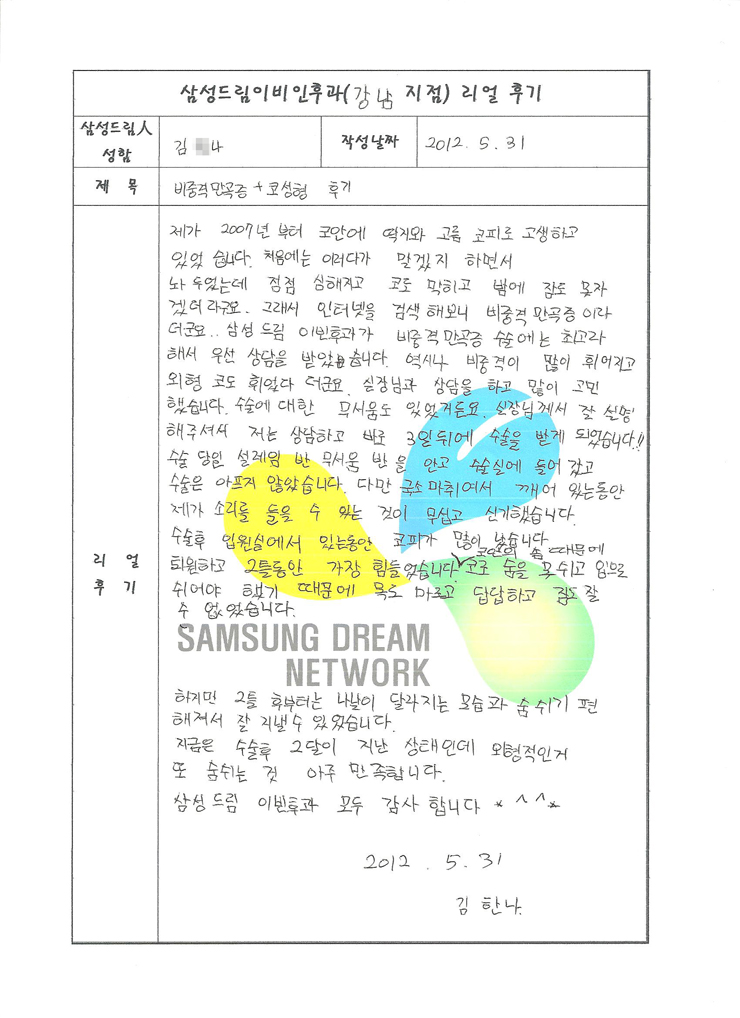 삼성드림이비인후과(강남 지점) 리얼 후기
삼성드림人 성함
김 나
작성날짜
2012. 5. 31
제 목
비중격만곡증 + 코성형 후기
리 얼 후 기
제가 2007년 부터 코안에 딱지와 고름 코피로 고생하고
있었 습니다. 처음에는 이러다가 말겠지 하면서
놔 두었는데 점점 심해지고 코도 막히고 밤에 잠도 못자
겠더라구요. 그래서 인터넷을 검색 해보니 비중격 만곡증 이라
더군요.. 삼성 드림 이빈후과가 비중격만곡증 수술에는 최고라
해서 우선 상담을 받았습니다. 역시나 비중격이 많이 휘어지고
외형 코도 휘었다 더군요. 실장님과 상담을 하고 많이 고민
했습니다. 수술에 대한 무서움도 있었거든요. 실장님께서 잘 설명
해주셔서 저는 상담하고 바로 3일뒤에 수술을 받게 되었습니다!!
수술 당일 설레임 반 무서움 반을 안고 수술실에 들어 갔고
수술은 아프지 않았습니다. 다만 국소마취여서 깨어 있는동안
제가 소리를 들을 수 있는 것이 무섭고 신기했습니다.
수술후 입원실에서 있는동안 코피가 많이 났습니다
퇴원하고 2틀동안 가장 힘들었습니다. 코안의 솜 때문에 코로 숨을 못 쉬고 입으로
쉬어야 했기 때문에 목도 마르고 답답하고 잠도 잘
수 없었습니다.
SAMSUNG DREAM
NETWORK
하지만 2틀 후부터는 나날이 달라지는 모습과 숨쉬기 편
해져서 잘 지낼 수 있었습니다.
지금은 수술후 2달이 지난 상태인데 외형적인거
또 숨쉬는 것 아주 만족합니다.
삼성드림 이빈후과 모두 감사 합니다 * ^^*
2012 . 5. 31
김 한나.